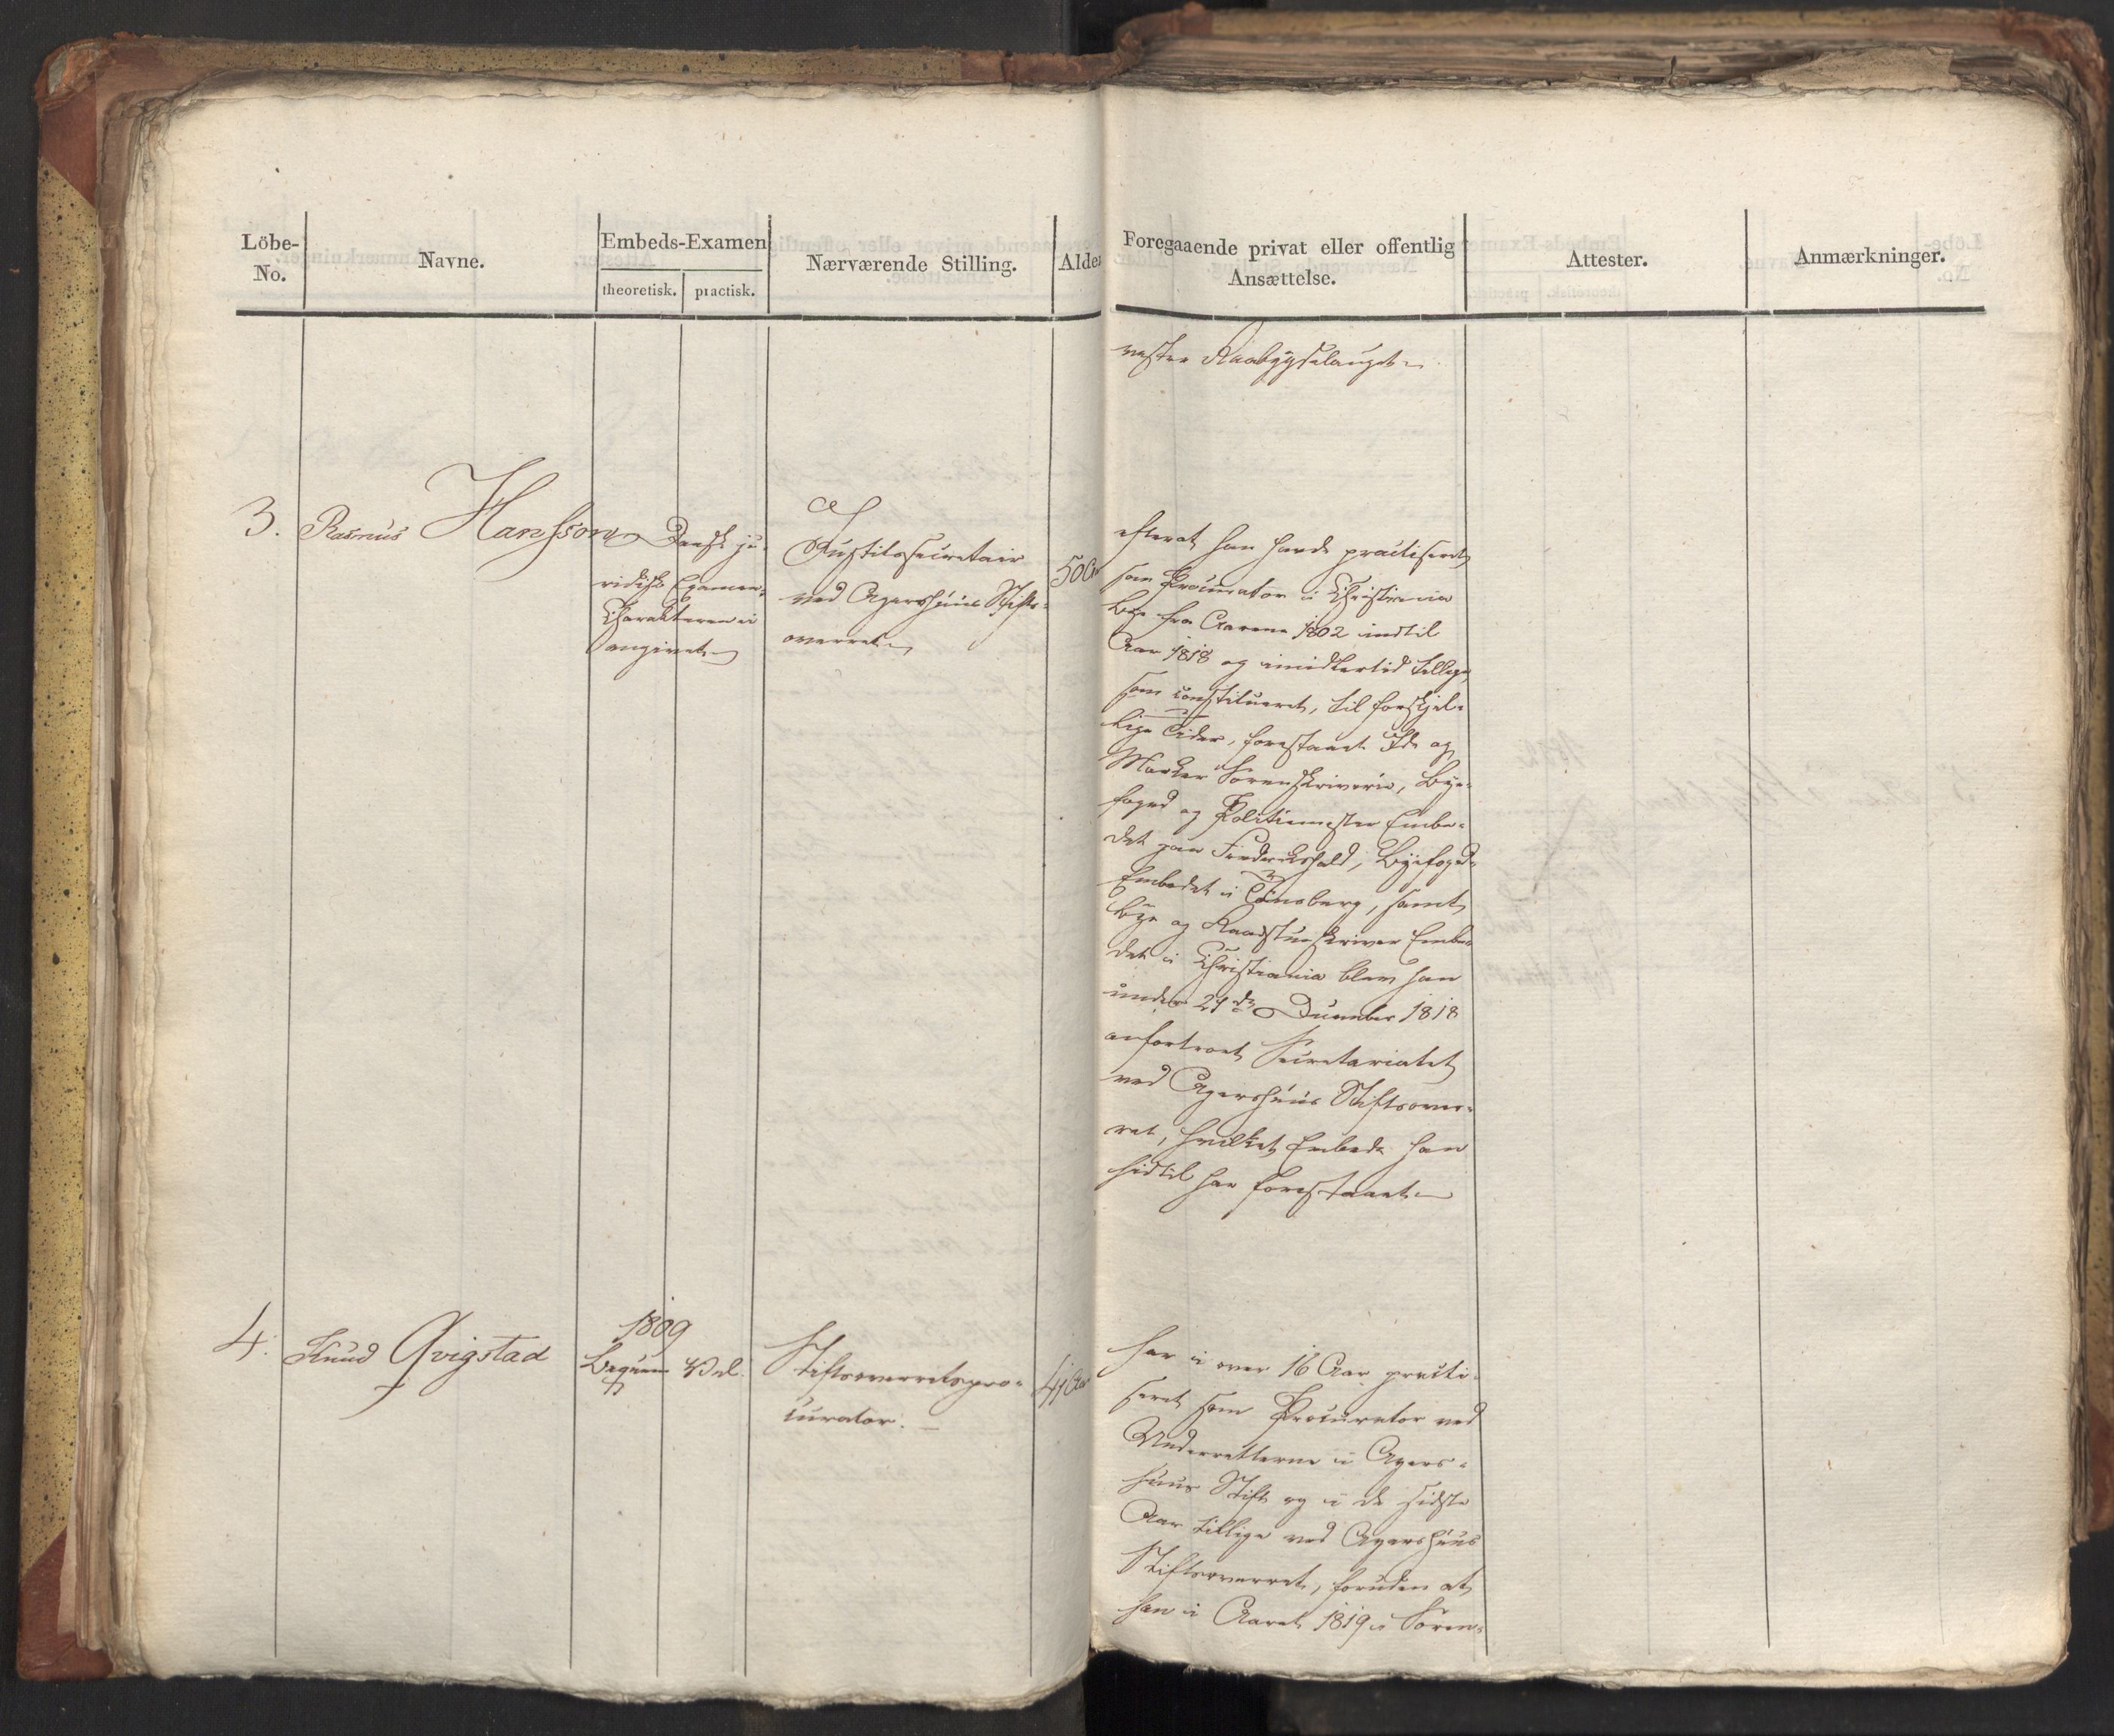 Löbe-No.
Navne.
Embeds-Examen
theoretisk.
practisk.
Nærværende Stilling.
Alder
Foregaaende privat eller offentlig
Ansættelse.
Attester.
Anmærkninger.
vestre Raabygdelauget
3. Rasmus Hansson
Dansk ju-
ridisk Examen,
Charakteren ei
angivet
Justitssecretair
ved Agershuus Stifts-
overret
50 Aar
efterat han havde practiseret
som Procurator i Christiania
bye fra Aarene 1802 indtil
Aar 1818 og imidlertid tillige,
som constitueret, til forskjel-
lige Tider, forestaaet Ide og
Marker Sorenskriverie, Bye-
foged og Politiemester Embe-
det paa Frederikshald, Byefoged-
Embedet i Tönsberg, samt
bye og Raadstueskriver Embe-
det i Christiania blev han
under 21de December 1818
anfortroet Secretariatet
ved Agershuus Stiftsover-
ret, hvilket Embede han
hidtil har forestaaet
4. Knud Qvigstad
1809
Beqvem
Vel.
Stiftsoverretspro-
curator.
41 Aar
har i over 16 Aar practi-
seret som Procurator ved
Underretterne i Agers-
huus Stift og i de sidste
Aar tillige ved Agershuus
Stiftsoverret, foruden at
han i Aaret 1819 i Soren-